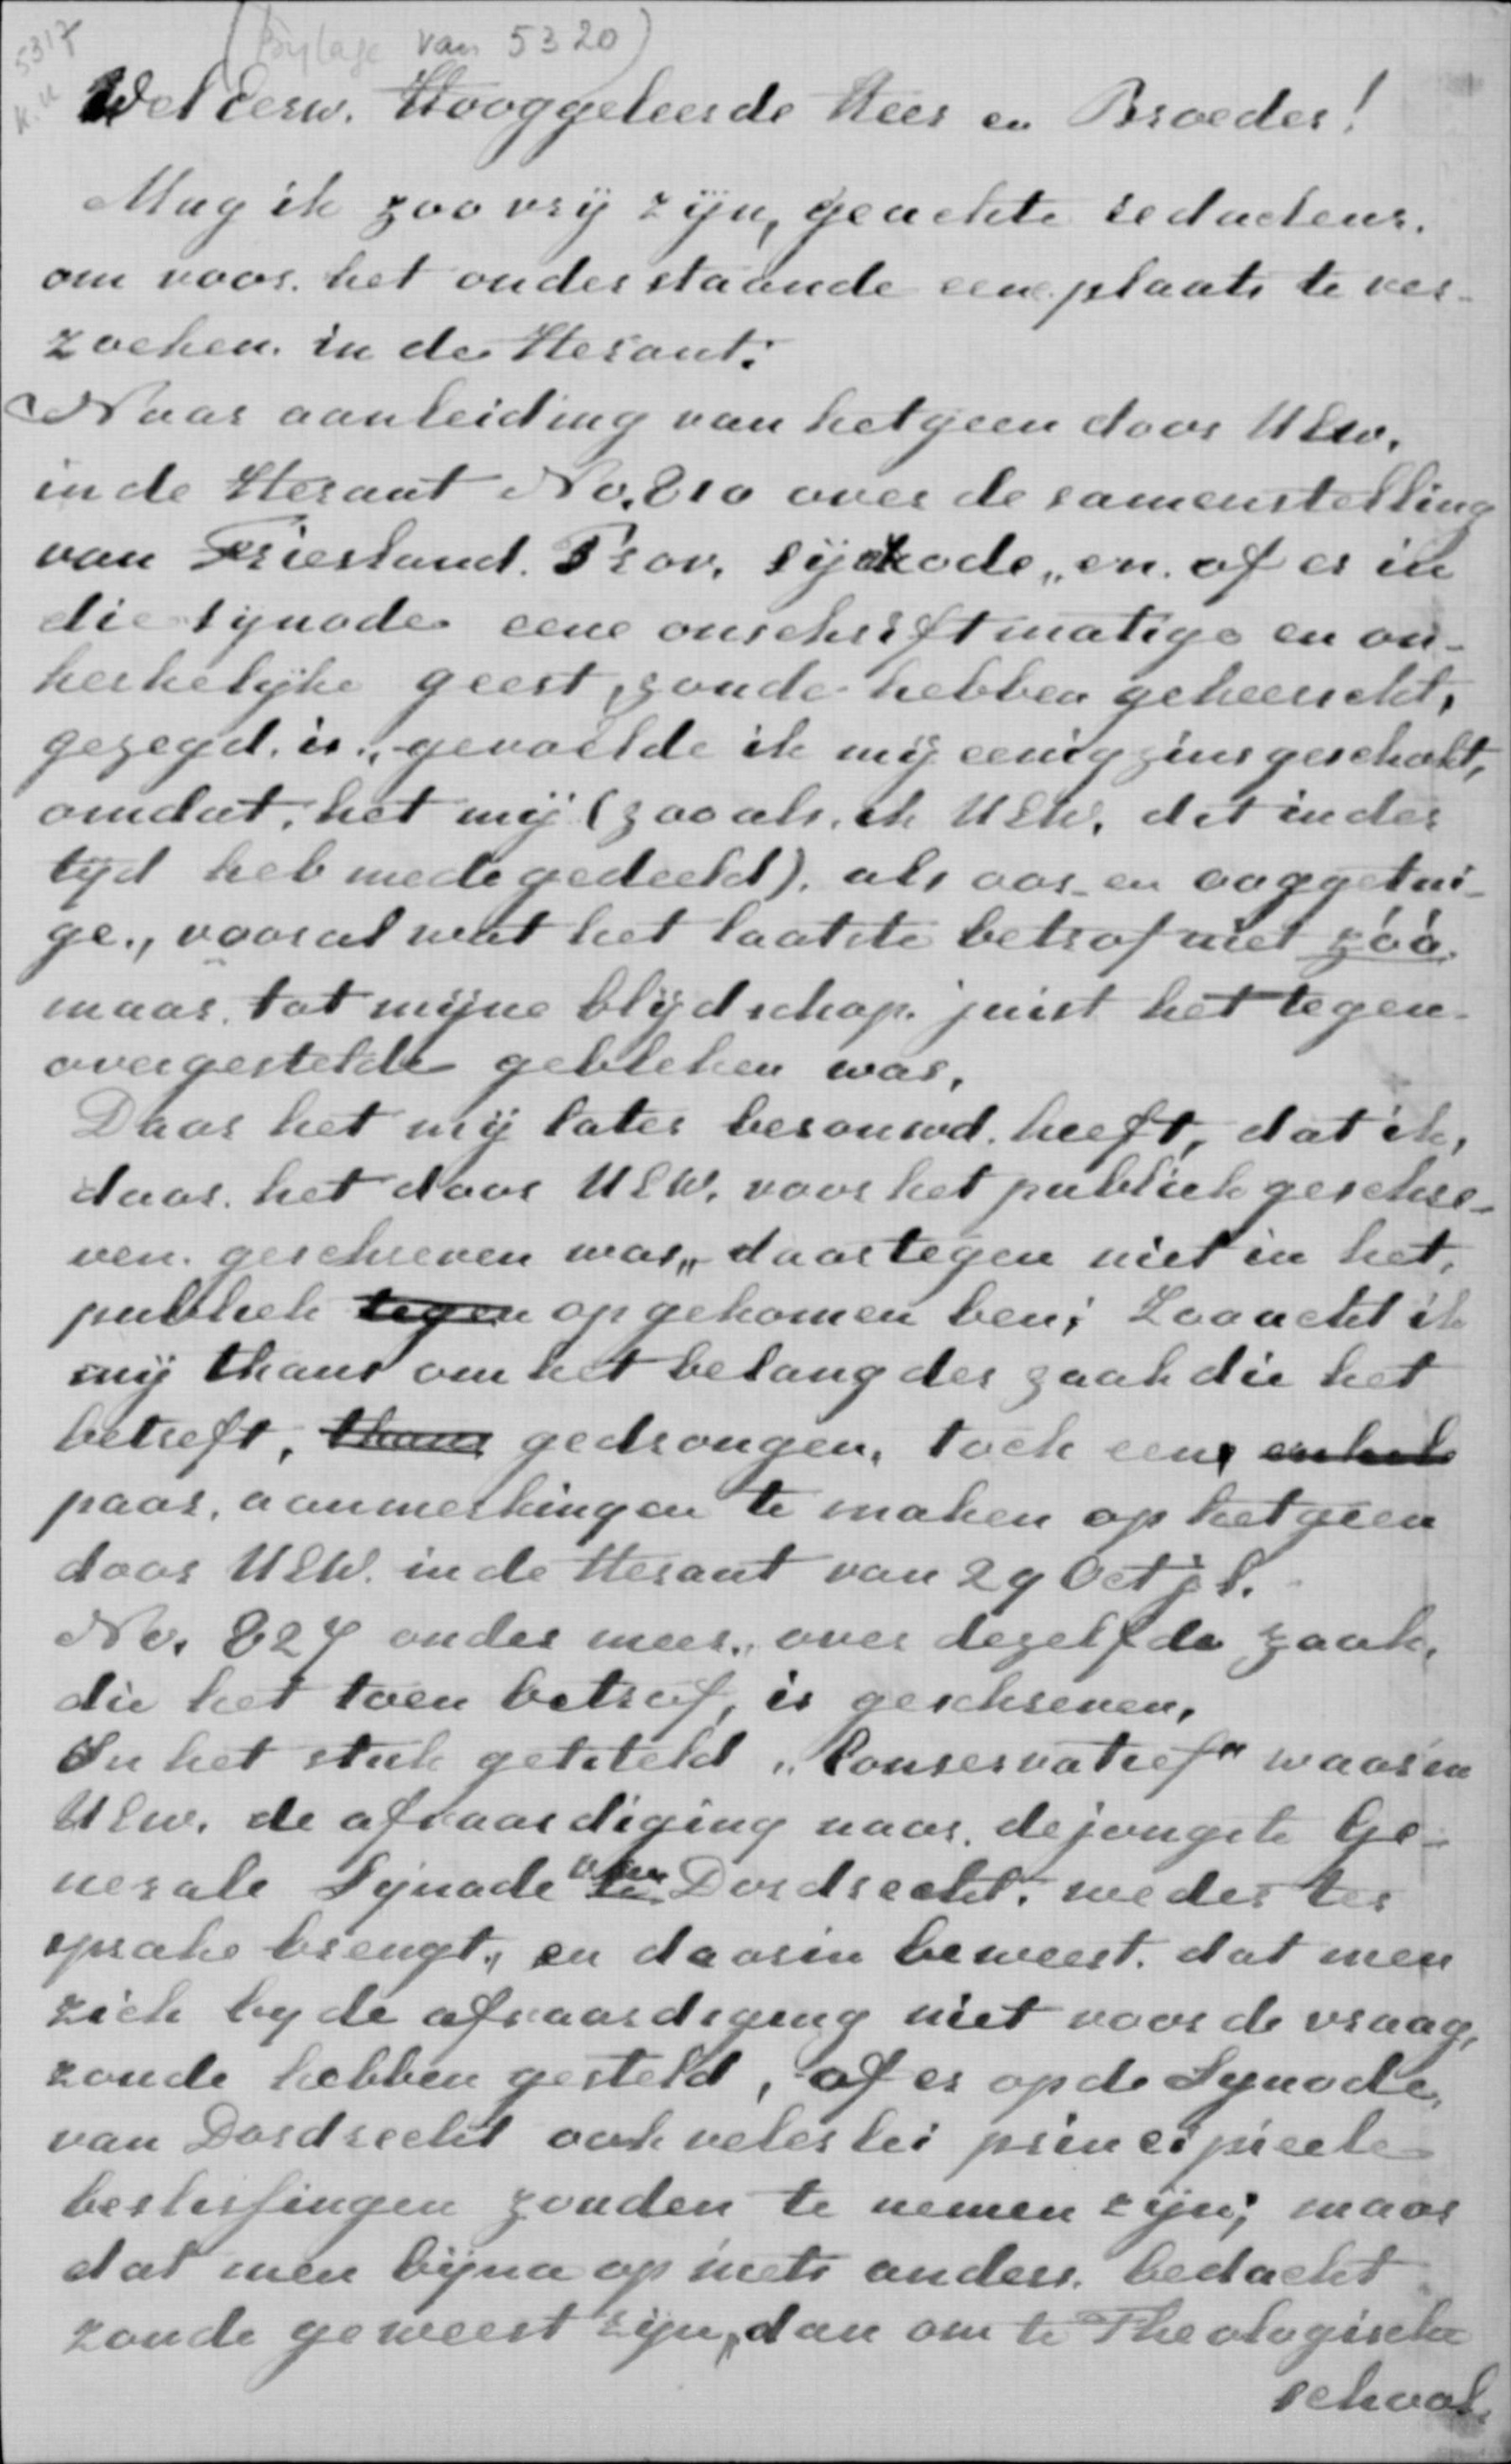 5317
K.U
(Bylage van 5320)
WelEerw. Hooggeleerde Heer en Broeder!
Mag ik zoo vrij zijn, geachte redacteur.
om voor. het onderstaande eene plaats te ver-
zoeken. in de Heraut:
Naar aanleiding van hetgeen door UEw,
in de Heraut No. 810 over de samenstelling
van Friesland. Prov. synode,, en. of er in
die synode eene onschriftmatige en on-
kerkelijke geest, zoude hebben geheerscht,
gezegd. is., gevoelde ik mij eenigzins geschokt,
omdat, het mij (zooals. ik UEW. dit inder
tijd heb medegedeeld). als oor- en ooggetui-
ge., vooral wat het laatste betrof niet zóó.
maar. tot mijne blijdschap. juist het tegen-
overgestelde gebleken was,
Daar het mij later berouwd. heeft, dat ik,
daar. het door UEW. voor het publiek geschre-
ven. geschreven was,, daartegen niet in het,
publiek tegen opgekomen ben; Zoo acht ik
mij thans om het belang der zaak die het
betreft, thans gedrongen, toch eene enkele
paar, aanmerkingen te maken op hetgeen
door UEW. in de Heraut van 29 Oct jl.
No. 827 onder meer., over dezelfde zaak,
die het toen betrof, is geschreven,
In het stuk getiteld „Conservatief" waarin
UEw. de afvaardiging naar. de jongste Ge-
nerale Synode van te Dordrecht. weder ter
sprake brengt., en daarin beweert. dat men
zich by de afvaardiging niet voor de vraag,
zoude hebben gesteld, of er op de Synode,
van Dordrecht ook velerlei principieele
beslissingen zouden te nemen zijn; maar
dat men bijna op niets anders. bedacht
zoude geweest zijn,, dan om te Theologische
school.